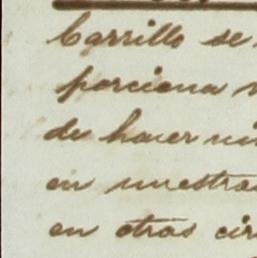 Carrillo se
porciona
de hacer
en nuestras
en otras cir